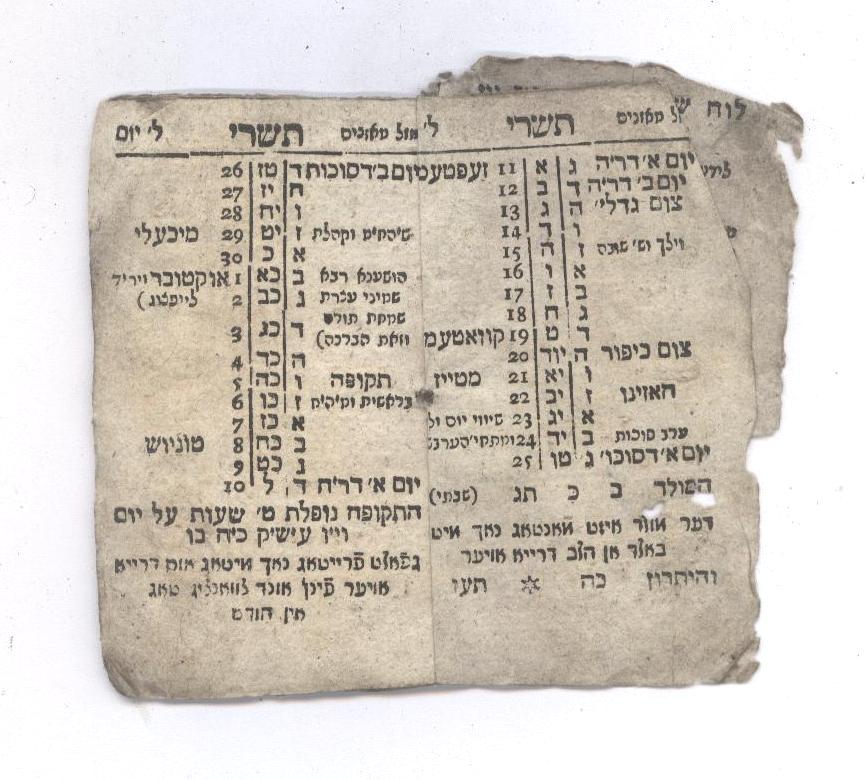 תשרי
מזל מאזנים
יום א׳ דר״ה ג א 11 זעפטעמ
יום ב׳ דר״ה ד ב 12
צום גדלי׳ ה ג 13
ו ד 14
וילך וש׳ שובה ז ה 15
א ו 16
ב ז 17
ג ח 18
ד ט 19 קוואטעמ
צום כיפור ה יוד 20
ו יא 21 מטייז
האזינו ז יב 22
א יג 23 שיווי יום ול
ערב סוכות ב יד 24
יום א׳ דסוכו׳ ג טו 25
המולד ב כ תג (שבתי)
דער מולד איזט מאנטאג נאך מיט
באלד אן הלב דרייא אויער
והיתרון כה תעו
ל׳ יום תשרי מזל מאזנים ל׳
יום ב׳ דסוכות ד טז 26
ה יז 27
ו יח 28
ז יט 29 מיכעלי
א כ 30
הושענא רבא ב כא 1 אוקטובר ויריד
שמיני עצרת ג כב 2 לייפציג)
שמחת תורה
וזאת הברכה) ד כג 3
ה כד 4
תקופה ו כה 5
בראשית ז כו 6
א כז 7
ב כח 8 טוניוש
ג כט 9
יום א׳ דר״ח ד ל 10
התקופה נופלת ט׳ שעות על יום
ויו עישיק כ״ה בו
געפאלט פרייטאג נאך מיטאג אום דרייא
אויער פינף אונד צוואנציג טאג
אין חודש
לוח